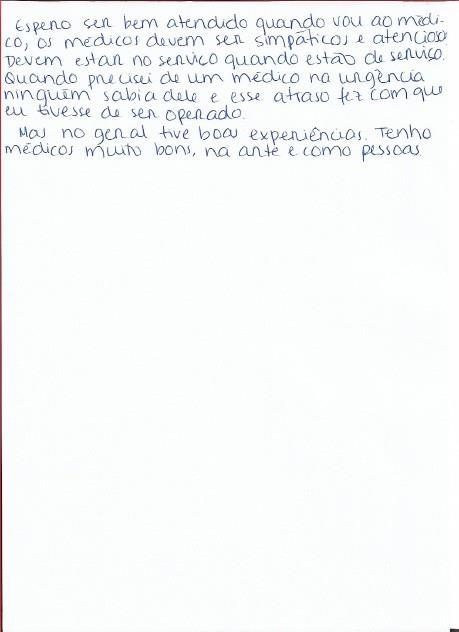 Espero ser bem atendido quando vou ao médi-
co, os médicos devem ser simpáticos e atencioso
Devem estar no serviço quando estão de serviço.
Quando precisei de um médico na urgência
ninguém sabia dele e esse atraso fez com que
eu tivesse de ser operado.
Mas no geral tive boas experiências. Tenho
médicos muito bons, na arte e como pessoas.